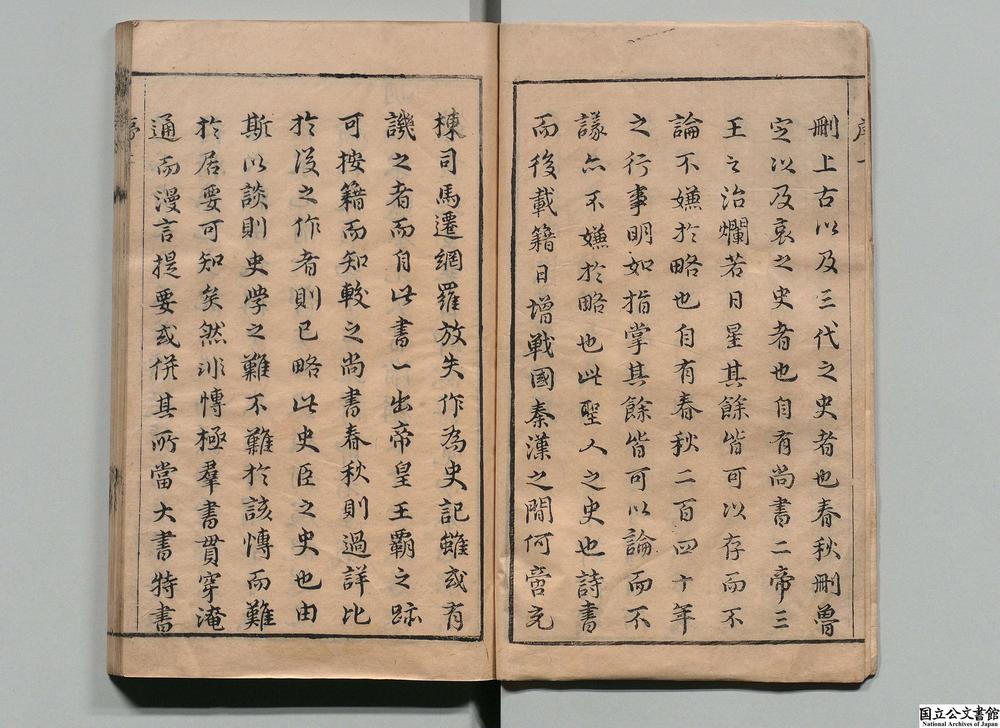 序一
刪上古以及三代之史者也春秋刪魯
定以及哀之史者也自有尚書二帝三
王之治爛若日星其餘皆可以存而不
論不嫌於略也自有春秋二百四十年
之行事明如指掌其餘皆可以論而不
議亦不嫌於略也此聖人之史也詩書
而後載籍日增戰國秦漢之間何啻充
棟司馬遷網羅放失作為史記雖或有
譏之者而自此書一出帝皇王霸之跡
可按籍而知較之尚書春秋則過詳比
於後之作者則已略此史臣之史也由
斯以談則史學之難不難於該博而難
於居要可知矣然非博極羣書貫穿淹
通而漫言提要或併其所當大書特書
国立公文書館
National Archives of Japan